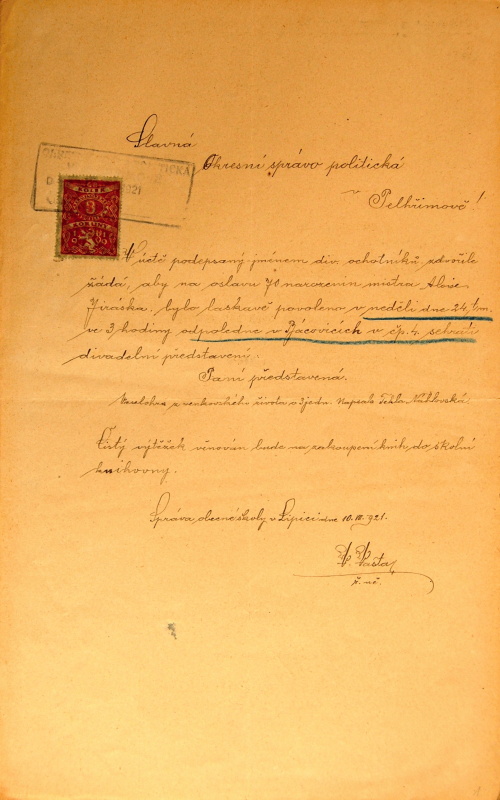 Slavná
Okresní správo politická
v
Pelhřimově!
KOLEK
3
KORUNY
V úctě podepsaný jménem div. ochotníků, zdvořile
žádá, aby na oslavu 70 narozenin mistra Aloise
Jiráska, bylo laskavě povoleno v neděli dne 24. t.m.
ve 3 hodiny odpoledne v Bácovicích v čp. 4. sehráti
divadelní představení:
Paní představená.
Veselohra z venkovského života o 3 jedn. Napsala Tekla
Čistý výtěžek věnován bude na zakoupení knih do školní
knihovny.
Správa obecné školy v Lipici dne 10. 921.
V.
ř. uč.